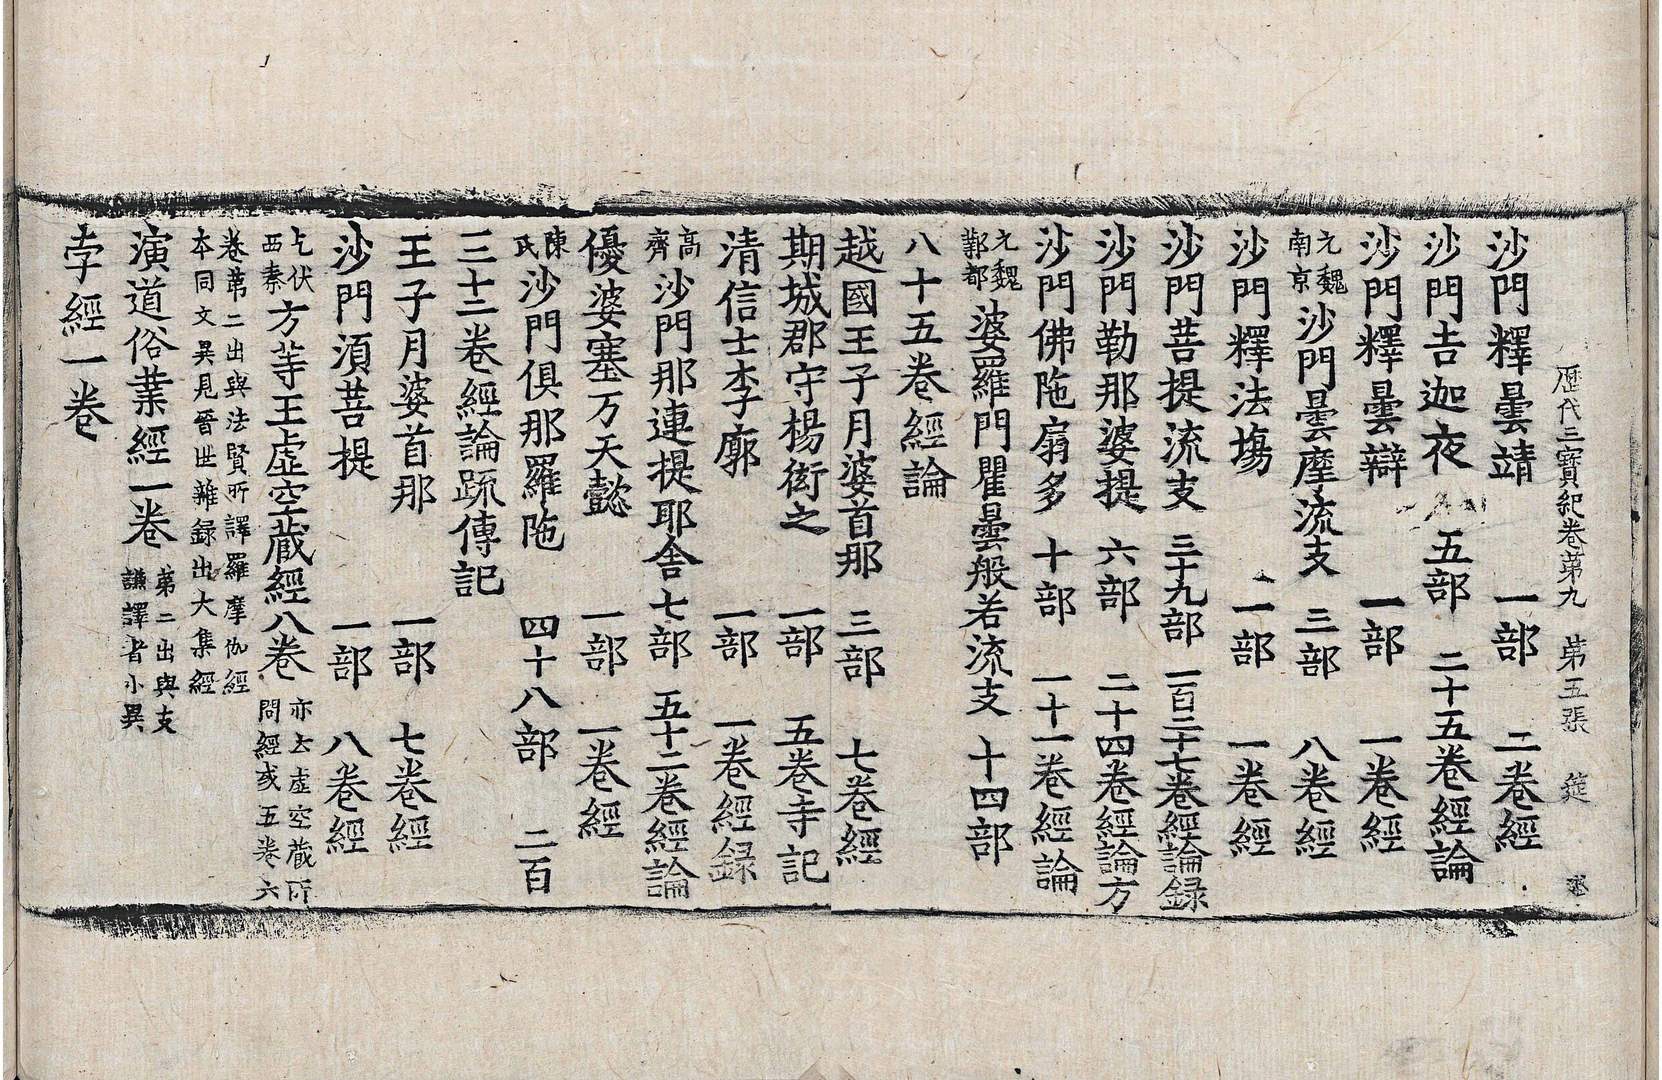 歷代三寶紀卷苐九 苐五張 莚
沙門釋曇靖 一部 二卷經
沙門吉迦夜 五部 二十五卷經論
沙門釋曇辯 一部 一卷經
元魏南京沙門曇摩流支 三部 八卷經
沙門釋法場 一部 一卷經
沙門菩提流支 三十九部 一百二十七卷經論録
沙門勒那婆提 六部 二十四卷經論方
沙門佛陁扇多 十部 一十一卷經論
元魏鄴都婆羅門瞿曇般若流支 十四部
八十五卷經論
越國王子月婆首那 三部 七卷經
期城郡守楊衒之 一部 五卷寺記
清信士李廓 一部 一卷經録
高齊沙門那連提耶舍七部 五十二卷經論
優婆塞万天懿 一部 一卷經
陳氏沙門俱那羅陁 四十八部 二百
三十二卷經論疏傳記
王子月婆首那 一部 七卷經
沙門湏菩提 一部 八卷經
乞伏西秦方等王虛空蔵經八卷 亦云虛空蔵所問經或五卷六
卷苐二出與法賢所譯羅摩伽經本同文異見晉世雜録出大集經
演道俗業經一卷 苐二出與支謙譯者小異
孛經一卷